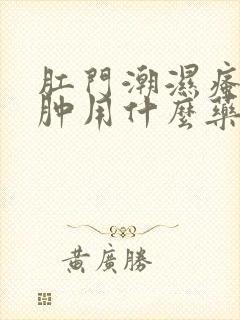 肛門潮濕瘙
肿用什麼藥
黃廣勝